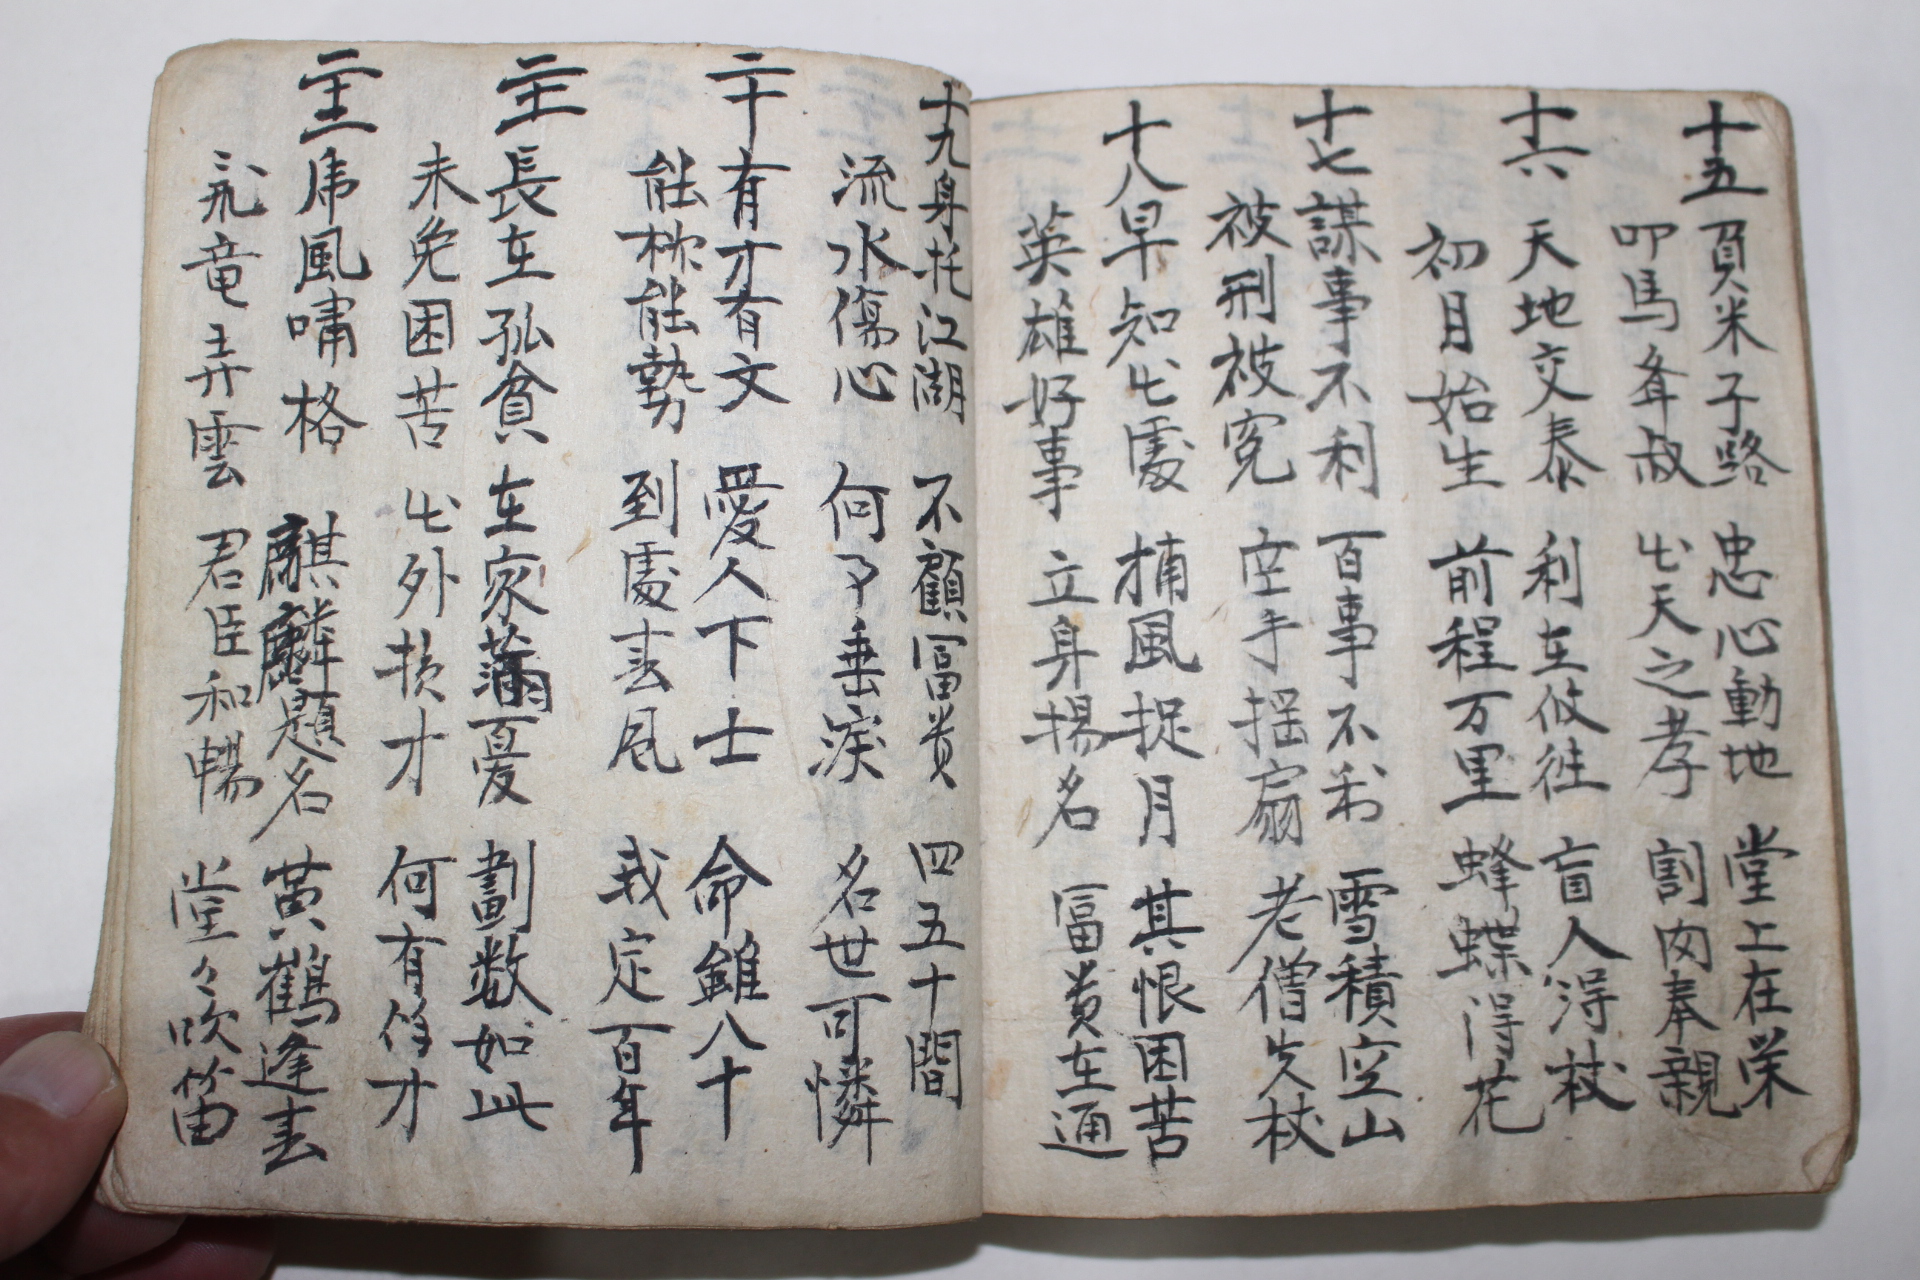 十五 負米子路 忠心動地 堂上在栄
叩馬夆叔 出天之孝 割肉奉親
十六 天地交泰 利在攸徃 盲人淂杖
初月始生 前程万里 蜂蝶淂花
十七 謀事不利 百事不利 雪積空山
被刑被寃 空手揺扇 老僧失杖
十八 早知出處 捕風捉月 其恨困苦
英雄好事 立身揚名 冨貴在通
十九 身托江湖 不顧冨贵 四五十間
流水傷心 何乃垂淚 名世可憐
二十 有才有文 愛人下士 命雖八十
能称能勢 到處春风 我定百年
二十一 長在孤貧 在家滿憂 劃数如此
未免困苦 出外損才 何有餘才
二十二 虎風嘯格 麒麟題名 黄鶴逢春
飛竜弄雲 君臣和暢 堂々吹笛